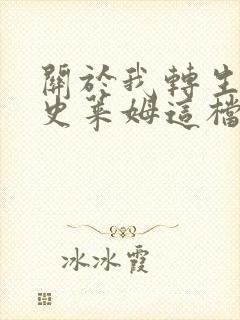 關於我轉生
史萊姆這檔
冰冰霞